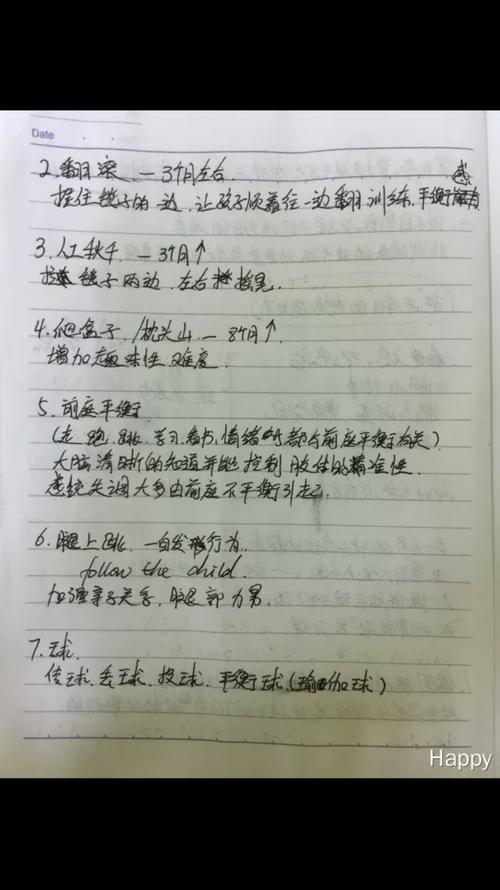 Date
2. 翻滚 — 3个月左右.
抓住毯子的一边, 让孩子顺着往一边翻训练, 平衡感
3. 人工秋千. — 3个月↑
毯子两边, 左右摇晃.
4. 爬盒子/枕头山. — 8个月↑
增加趣味性, 难度.
5. 前庭平衡
(走. 跑. 跳. 学习. 看书. 情绪 都与前庭平衡有关)
大脑清晰的知道并能控制肢体的精准性.
感统失调大多由前座不平衡引起.
6. 腿上跳. — 自发行为.
follow the child.
加强亲子关系, 腿部力量.
7. 球.
传球. 丢球. 投球. 平衡球(瑜伽球)
Happy